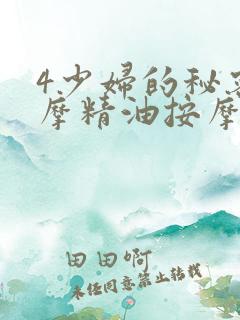 4.少妇的秘
摩精油按摩
田田啊
未经同意禁止转载